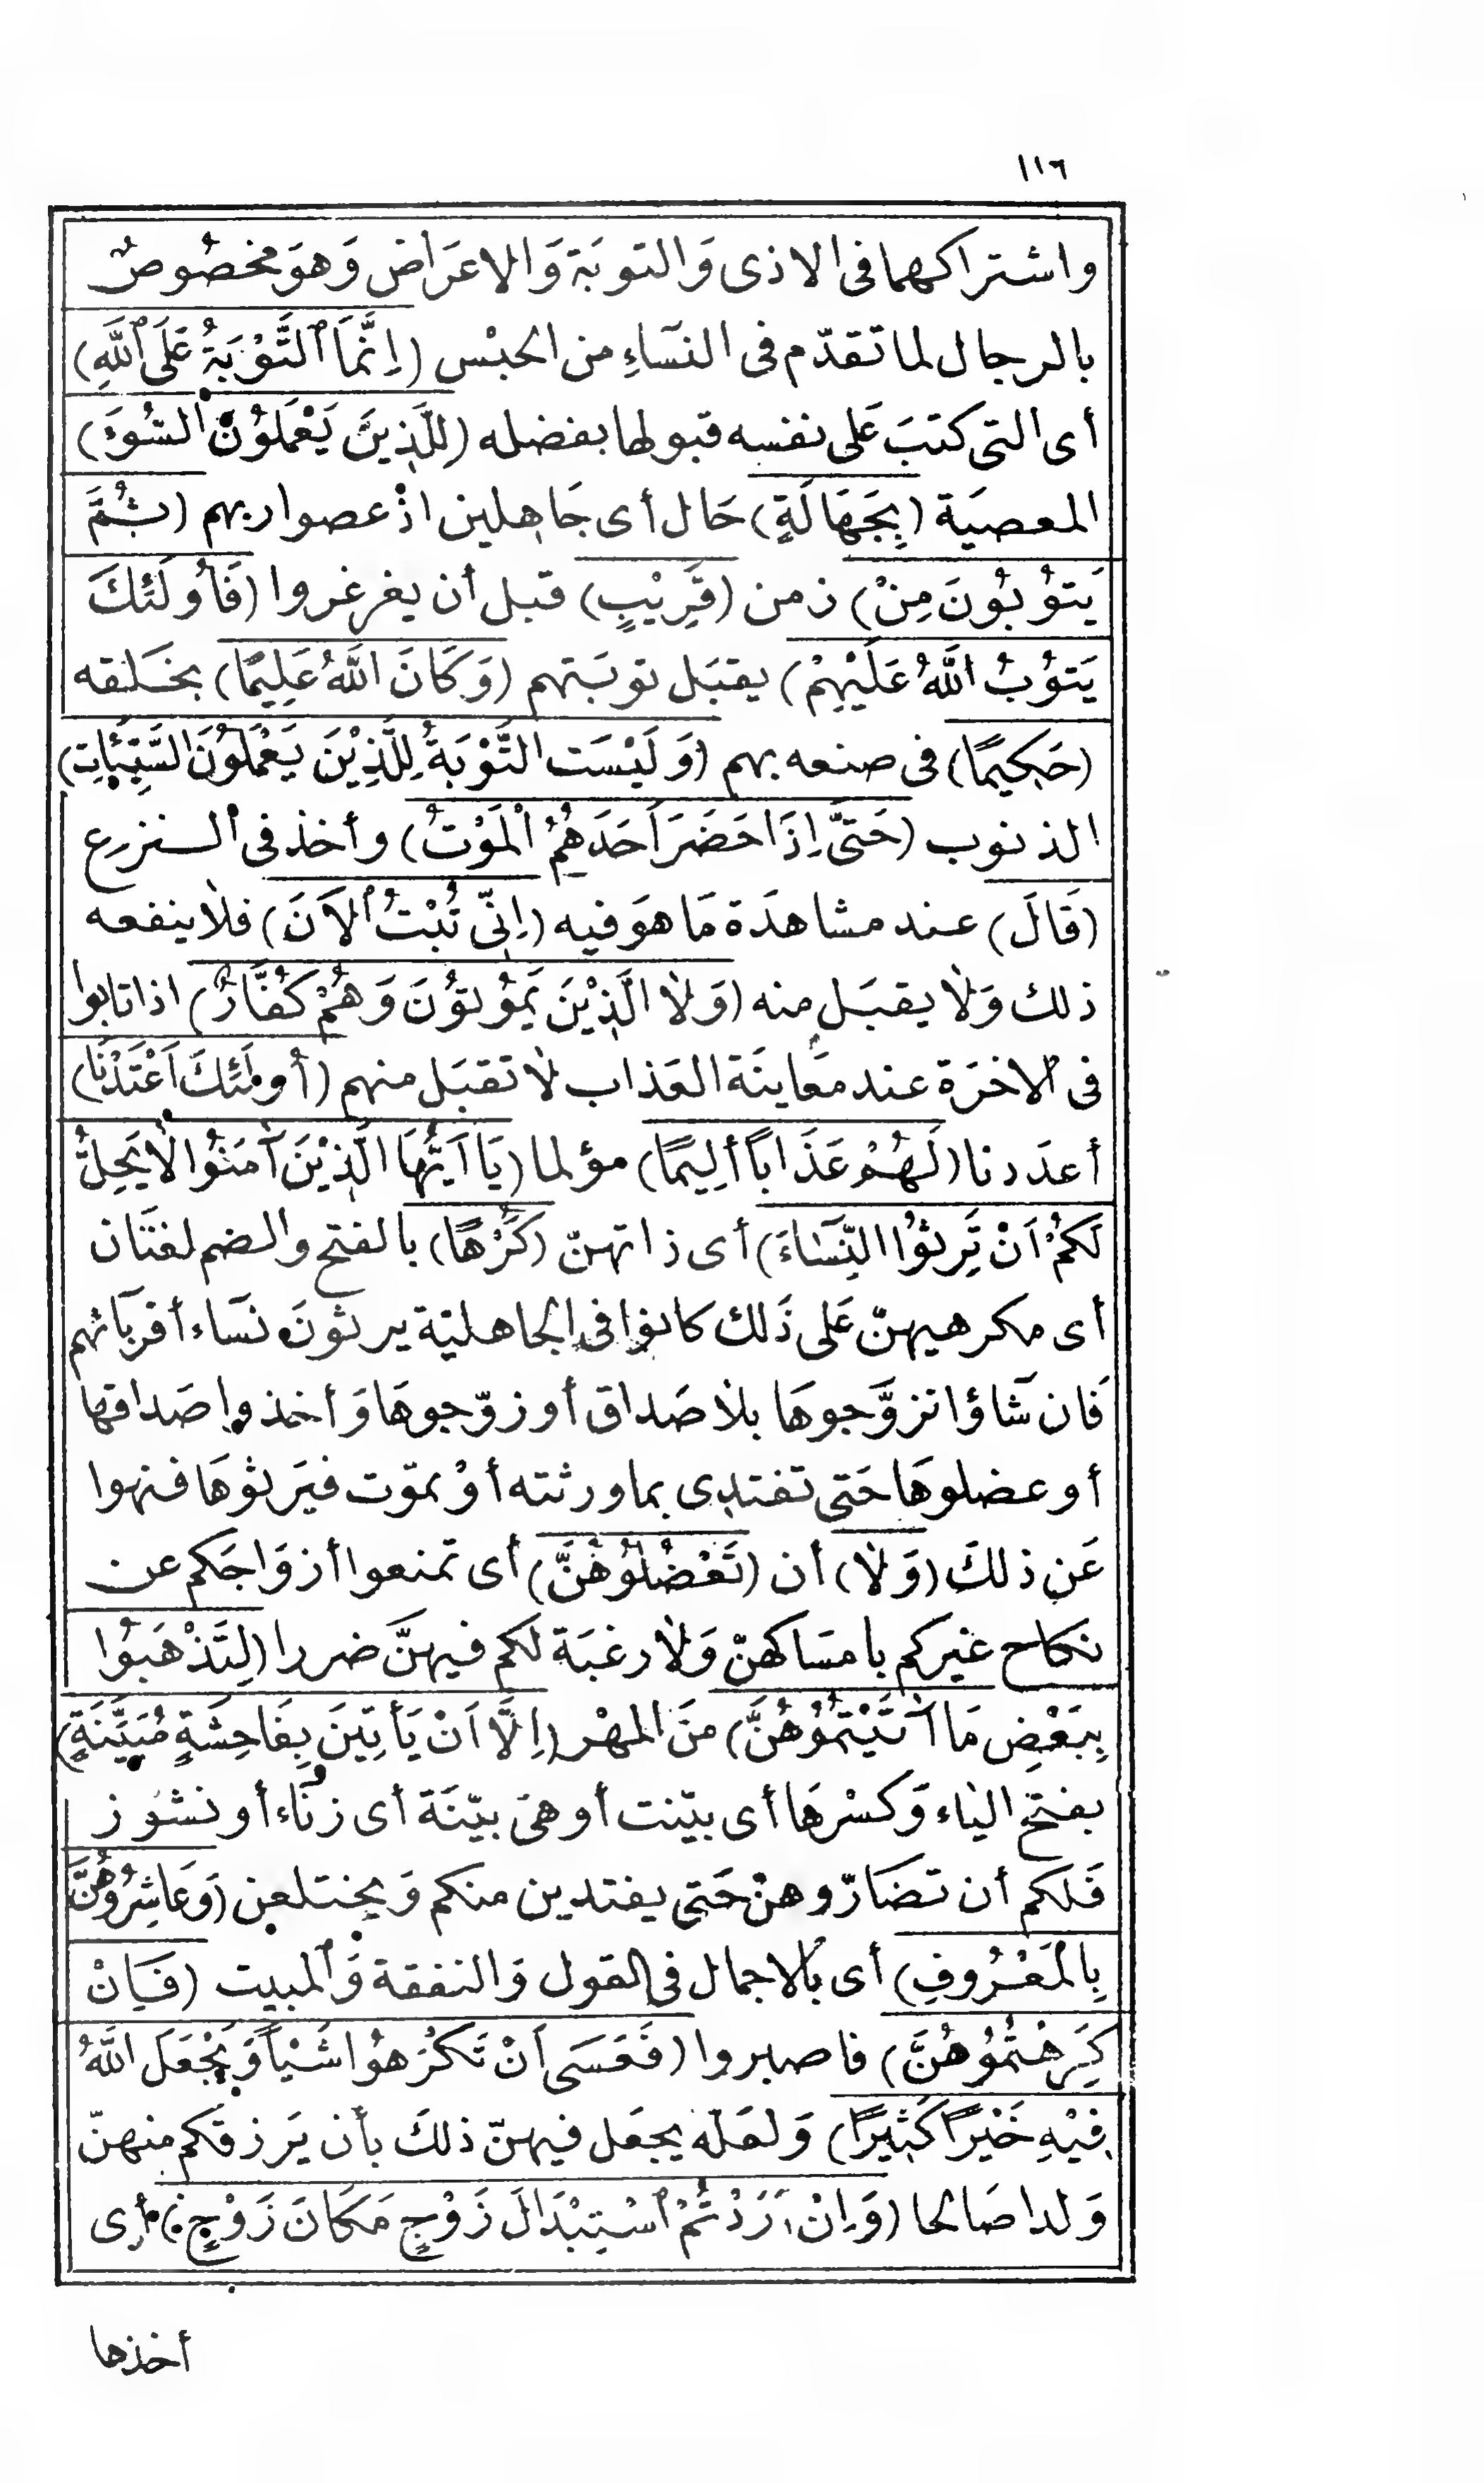 ١١٦
واشتراكهما فى الاذى وَالتوبَة وَالاعرَاض وَهوَ مخصُوصٌ
بالرجال لما تقدّم فى النسَآءِ من الحبْس (اِنَّمَا ٱلتَّوْبَةُ عَلَى ٱللَّهِ)
أى التى كتبَ عَلى نفسه قبولها بفضله (لِلَّذِينَ يَعْمَلُوْنَ ٱلسُّوٓءَ)
المعصيَة (بِجَهَالَةٍ) حَال أى جَاهلين اذْ عصوا ربهم (ثُمَّ
يَتوُبُونَ مِنْ) زمن (قَرِيْبٍ) قبل أن يغرغروا (فَأُولَئِكَ
يَتوُبُ اللَّهُ عَلَيْهِمْ) يقبَل توبَتهم (وَكَانَ اللَّهُ عَلِيمًا) بخَلقه
(حَكِيمًا) فى صنعه بهم (وَلَيْسَت التَّوْبَةُ لِلَّذِيْنَ يَعْمَلُونَ السَّيِّئَاتِ)
الذنوب (حَتَّى اِذَا حَضَرَ اَحَدَهُمُ ٱلْمَوْتُ) وأخذ فى ٱلنزع
(قَالَ) عند مشاهدَة مَا هوَ فيه (اِنِّى تُبْتُ ٱلاَنَ) فلا ينفعه
ذلك وَلا يقبَل منه (وَلَا الَّذِيْنَ يَمُوْتوُنَ وَهُمْ كُفَّارٌ) اذا تابوا
فى الاخرَة عند مَعاينَة العَذاب لا تقبَل منهم (أُولَئِكَ اَعْتَدْنَا)
أعدَدنا (لَهُمْ عَذَاباً أَلِيمًا) مؤلما (يَا اَيُّهَا الَّذِيْنَ آمَنُوا لَا يَحِلُّ
لَكُمْ اَنْ تَرِثوُا النِّسَاءَ) أى ذاتهنّ (كَُرْهًا) بالفتح والضم لغتَان
أى مكرهيهنّ عَلى ذَلك كانوا فى الجاهليّة يرثونَ نسَاء أقربَائهم
فَان شَاؤا تزوَّجوهَا بلا صَداق أو زوّجوهَا وَأخذوا صَداقها
أو عضلوهَا حَتى تفتدى بما ورثته أوْ تموّت فيَرثوهَا فنهوا
عَن ذلكَ (وَلَا) أن (تَعْضُلُوْهُنَّ) أى تمنعوا أزوَاجَكم عن
نكاح غيركم بامسَاكهنّ وَلا رغبَة لكم فيهنَّ ضررا (لِتَذْهَبُوا
بِبَعْضِ مَا آتَيْتُمُوْهُنَّ) منَ المهْر (اِلَّا اَنْ يَأتِيْنَ بِفَاحِشَةٍ مُبَيِّنَةٍ)
بفتح اليَاء وَكسْرهَا أى بيّنت أو هىَ بيّنَة أى زنَاء أو نشوز
فَلكم أن تضَارّوهنْ حَتى يفتدين منكم وَيختلعن (وَعَاشِرُوْهُنَّ
بِالْمَعْرُوفِ) أى بالاجمال فى القول وَالنفقة وَٱلمبيت (فَاِنْ
كَرِهْتُمُوْهُنَّ) فاصبروا (فَعَسَى اَنْ تَكْرَهُوا شَيْأً وَيَجْعَلَ اللَّهُ
فِيْهِ خَيْرًا كَثِيرًا) وَلعَلّه يجعَل فيهنّ ذلكَ بأن يَرزقكم منهنّ
وَلدا صَالحا (وَاِنْ اَرَدْتُمْ ٱسْتِبْدَالَ زَوْجٍ مَكَانَ زَوْجٍ) أى
أخذها